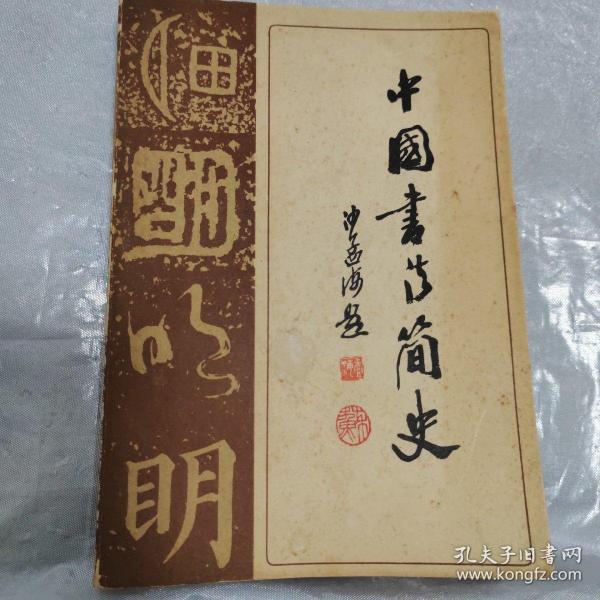 中國書法简史
沙孟海题
明
孔夫子旧书网
www.kongfz.com